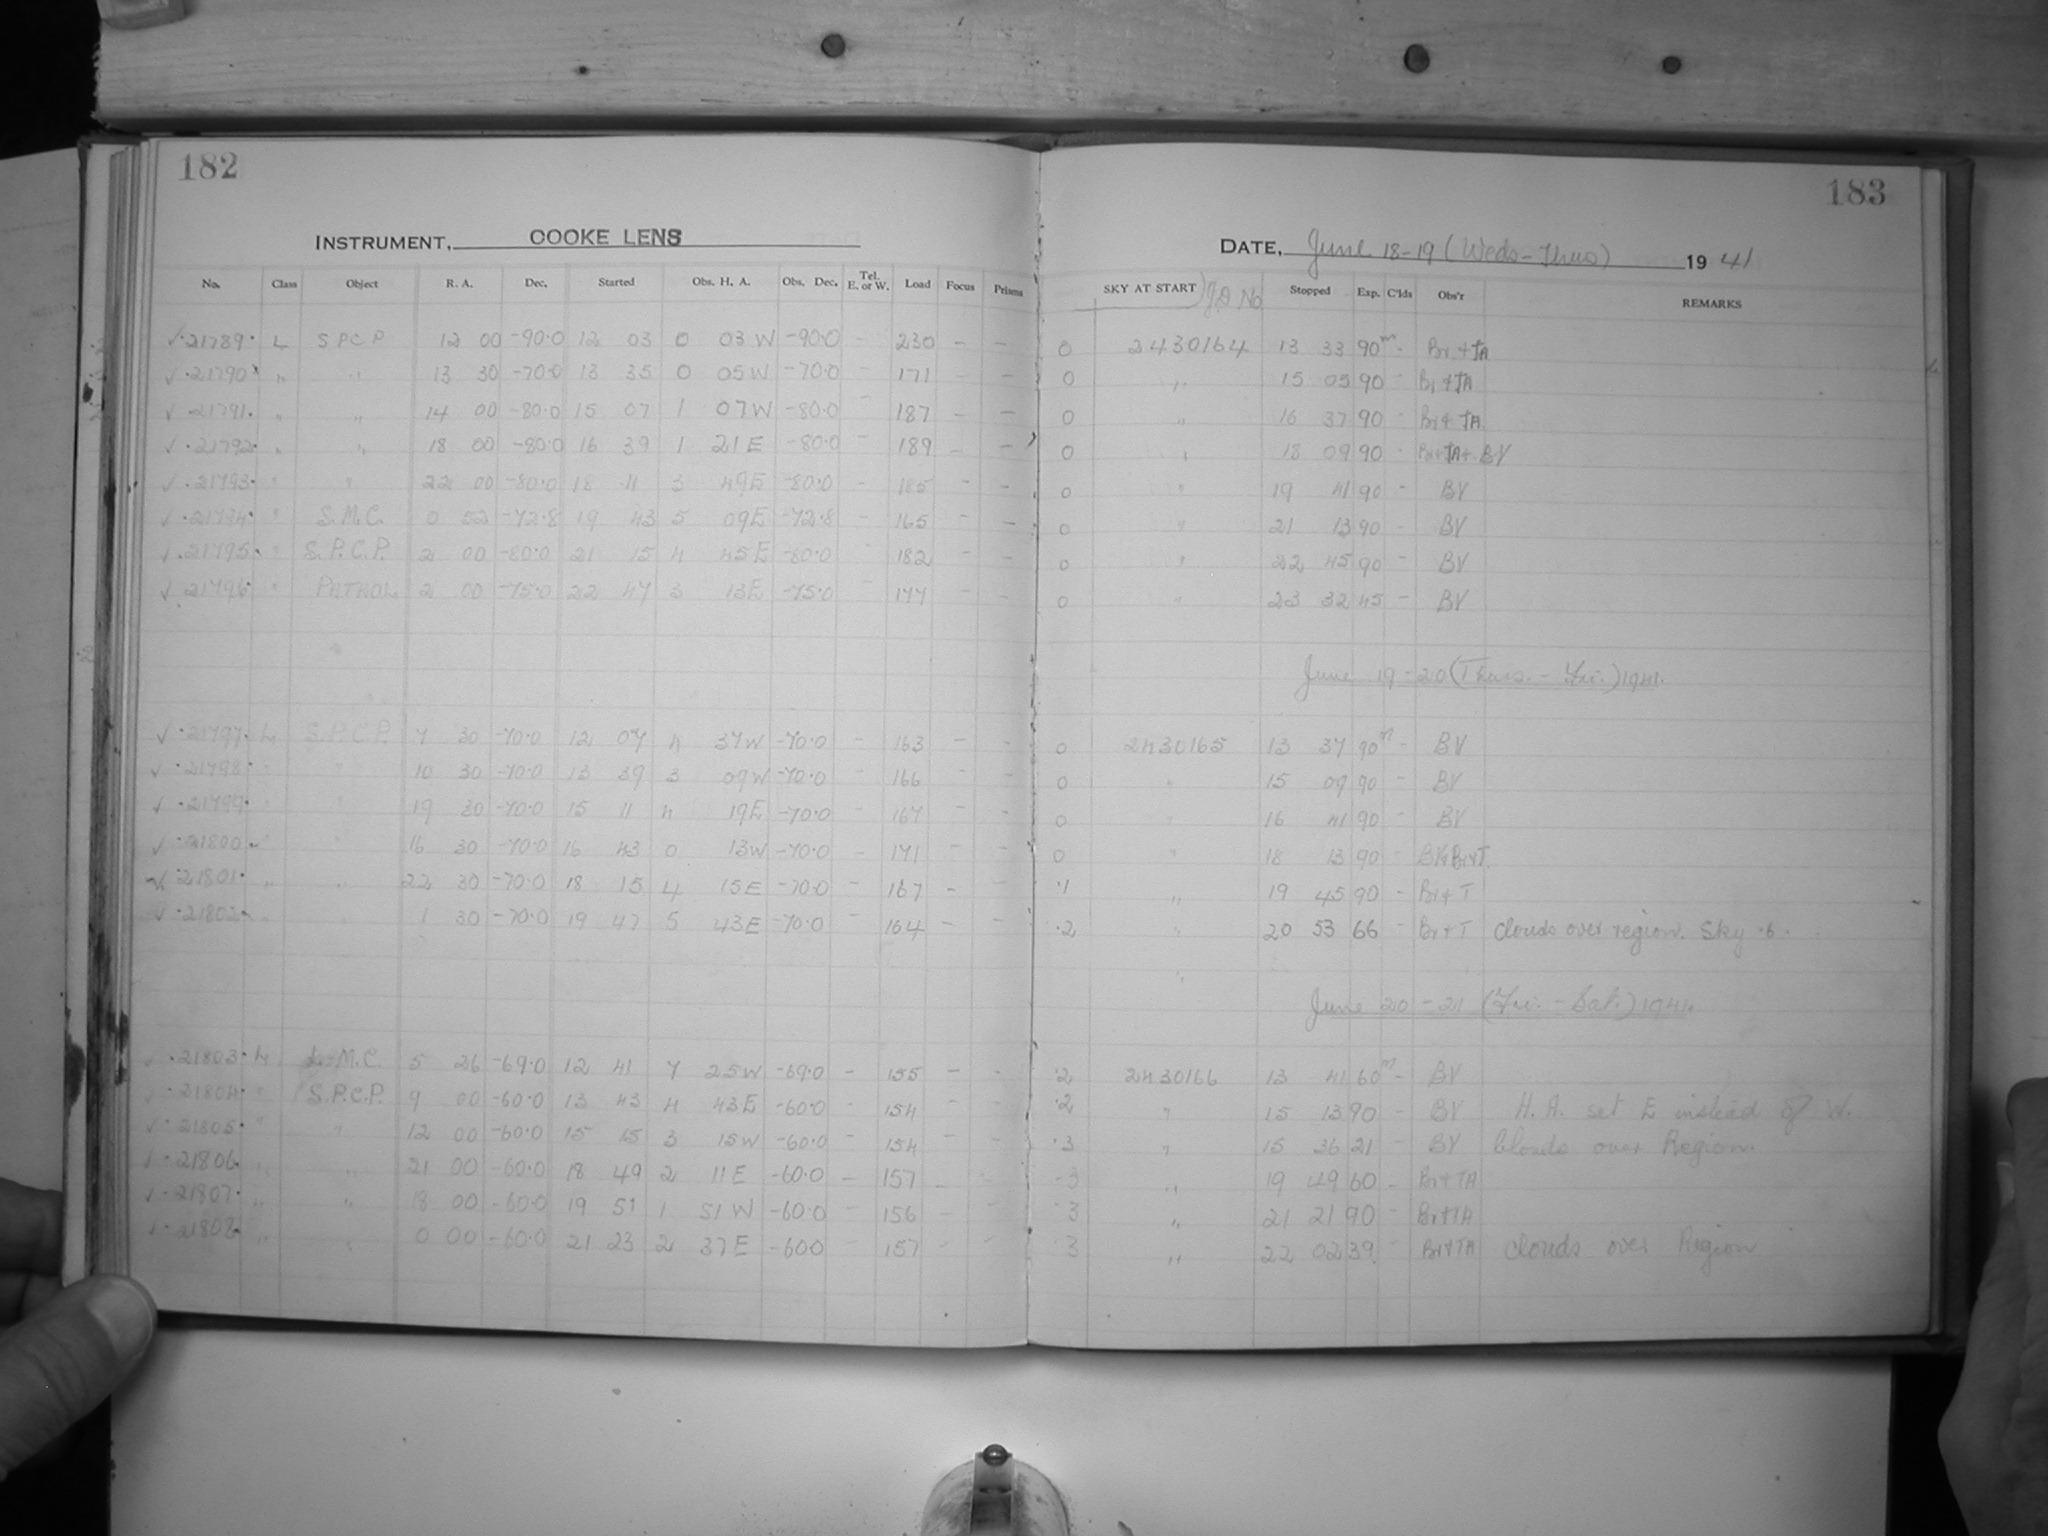 182
183
INSTRUMENT, COOKE LENS
DATE, June 18-19 (Weds-Thurs) 1941
No. Class Object R. A. Dec. Started Obs. H. A. Obs. Dec. Tel. E. or W. Load Focus Prisms SKY AT START J.D. No Stopped Exp. C'lds Obs'r REMARKS
✓ 21789 L S P C P 12 00 -90.0 12 03 0 03 W -90.0 - 230 - - 0 2430164 13 33 90m - Br + TA
✓ 21790 " " 13 30 -70.0 13 35 0 05 W -70.0 - 171 - - 0 " 15 05 90 - Br + TA
✓ 21791 " " 14 00 -80.0 15 07 1 07 W -80.0 - 187 - - 0 " 16 37 90 - Br + TA
✓ 21792 " " 18 00 -80.0 16 39 1 21 E -80.0 - 189 - - 0 " 18 09 90 - Br + TA + BV
✓ 21793 " " 22 00 -80.0 18 11 3 49 E -80.0 - 185 - - 0 " 19 41 90 - BV
✓ 21794 " S.M.C. 0 52 -72.8 19 43 5 09 E -72.8 - 165 - - 0 " 21 13 90 - BV
✓ 21795 " S.P.C.P. 2 00 -80.0 21 15 4 45 E -80.0 - 182 - - 0 " 22 45 90 - BV
✓ 21796 " PATROL 2 00 -75.0 22 47 3 13 E -75.0 - 177 - - 0 " 23 32 45 - BV
June 19-20 (Thurs. - Fri.) 1941.
✓ 21797 L S.P.C.P. 7 30 -70.0 12 07 4 37 W -70.0 - 163 - - 0 2430165 13 37 90m - BV
✓ 21798 " " 10 30 -70.0 13 39 3 09 W -70.0 - 166 - - 0 " 15 09 90 - BV
✓ 21799 " " 19 30 -70.0 15 11 4 19 E -70.0 - 167 - - 0 " 16 41 90 - BV
✓ 21800 " " 16 30 -70.0 16 43 0 13 W -70.0 - 171 - - 0 " 18 13 90 - BV + Br + T.
✓ 21801 " " 22 30 -70.0 18 15 4 15 E -70.0 - 167 - - .1 " 19 45 90 - Br + T
✓ 21802 " " 1 30 -70.0 19 47 5 43 E -70.0 - 164 - - .2 " 20 53 66 - Br + T clouds over region. Sky .6.
"
June 20-21 (Fri. - Sat.) 1941.
✓ 21803 L L.M.C. 5 26 -69.0 12 41 7 25 W -69.0 - 155 - - .2 2430166 13 41 60m - BV
✓ 21804 " S.P.C.P. 9 00 -60.0 13 43 4 43 E -60.0 - 154 - - .2 " 15 13 90 - BV H. A. set E instead of W.
✓ 21805 " " 12 00 -60.0 15 15 3 15 W -60.0 - 154 - - .3 " 15 36 21 - BV Clouds over Region.
✓ 21806 " " 21 00 -60.0 18 49 2 11 E -60.0 - 157 - - .3 " 19 49 60 - Br + TA
✓ 21807 " " 18 00 -60.0 19 51 1 51 W -60.0 - 156 - - .3 " 21 21 90 - Br + TA
✓ 21808 " " 0 00 -60.0 21 23 2 37 E -60.0 157 - - 3 " 22 02 39 - Br + TA clouds over Region